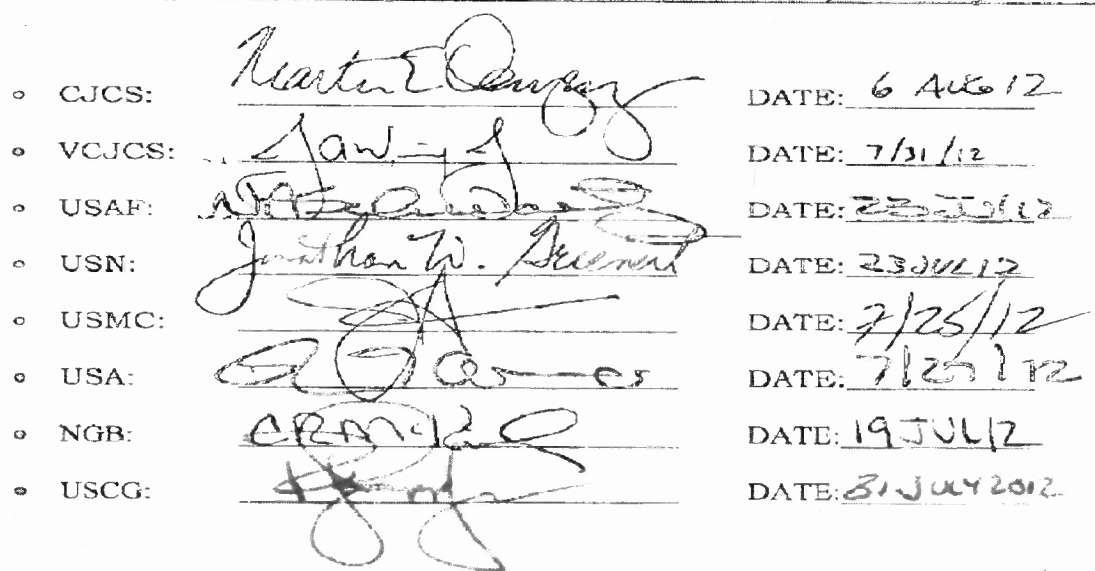 CJCS: Martin E Dempsey DATE: 6 AUG 12
VCJCS: DATE: 7/31/12
USAF: DATE: 23 Jul 12
USN: Jonathan W. Greenert DATE: 23 JUL 12
USMC: DATE: 7/25/12
USA: DATE:
NGB: DATE: 19 JUL 12
USCG: DATE: 31 JULY 2012